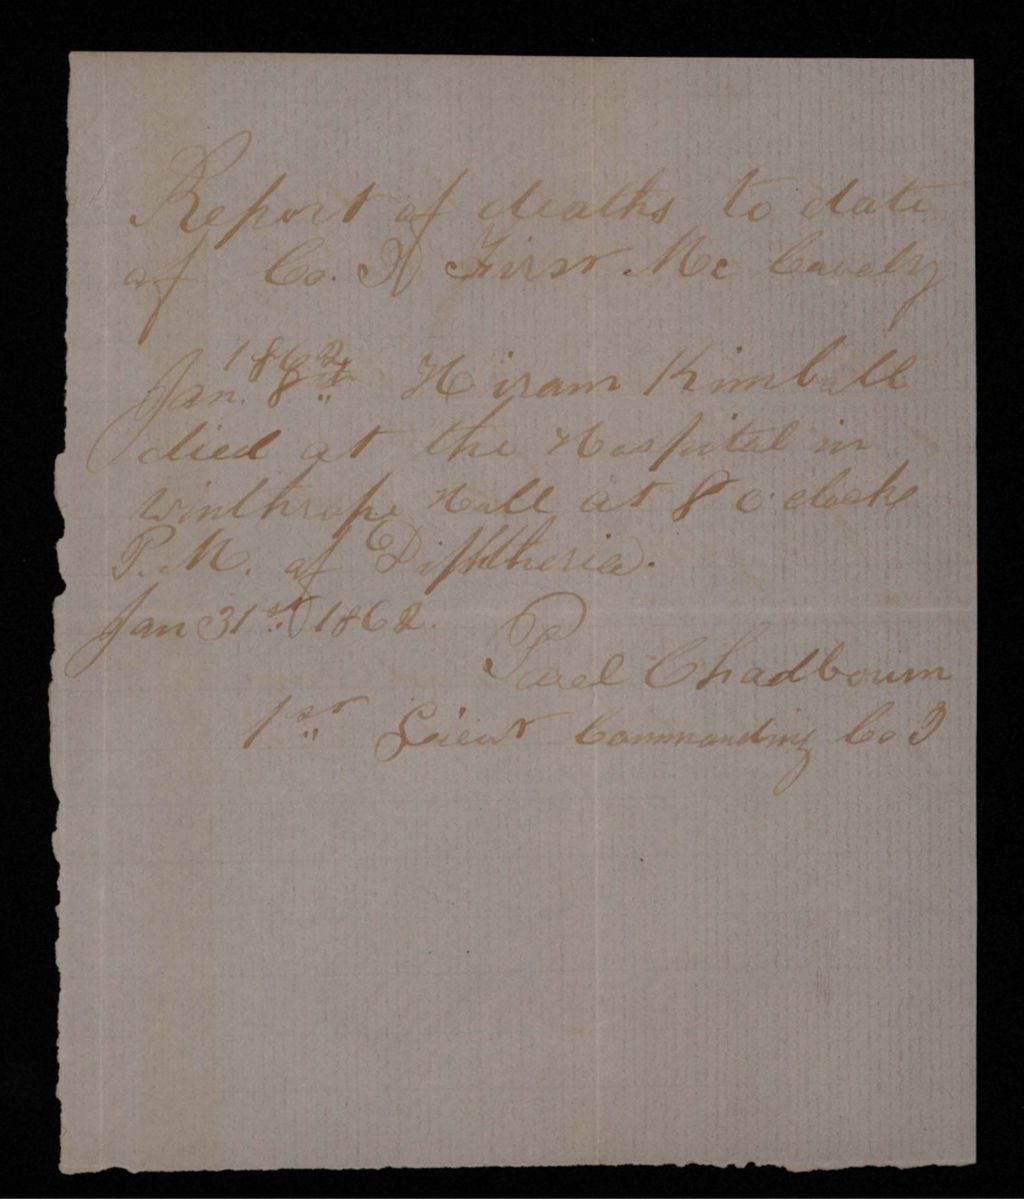 Report of deaths to date
of Co. I First Me Cavelry
1862
Jan. 8th Hiram Kimball
died at the Hospital in
Winthrope Hall at 8 o'clock
P.M. of Diphtheria.
Jan 31st 1862.
Paul Chadbourn
1st Lieut Commanding Co I